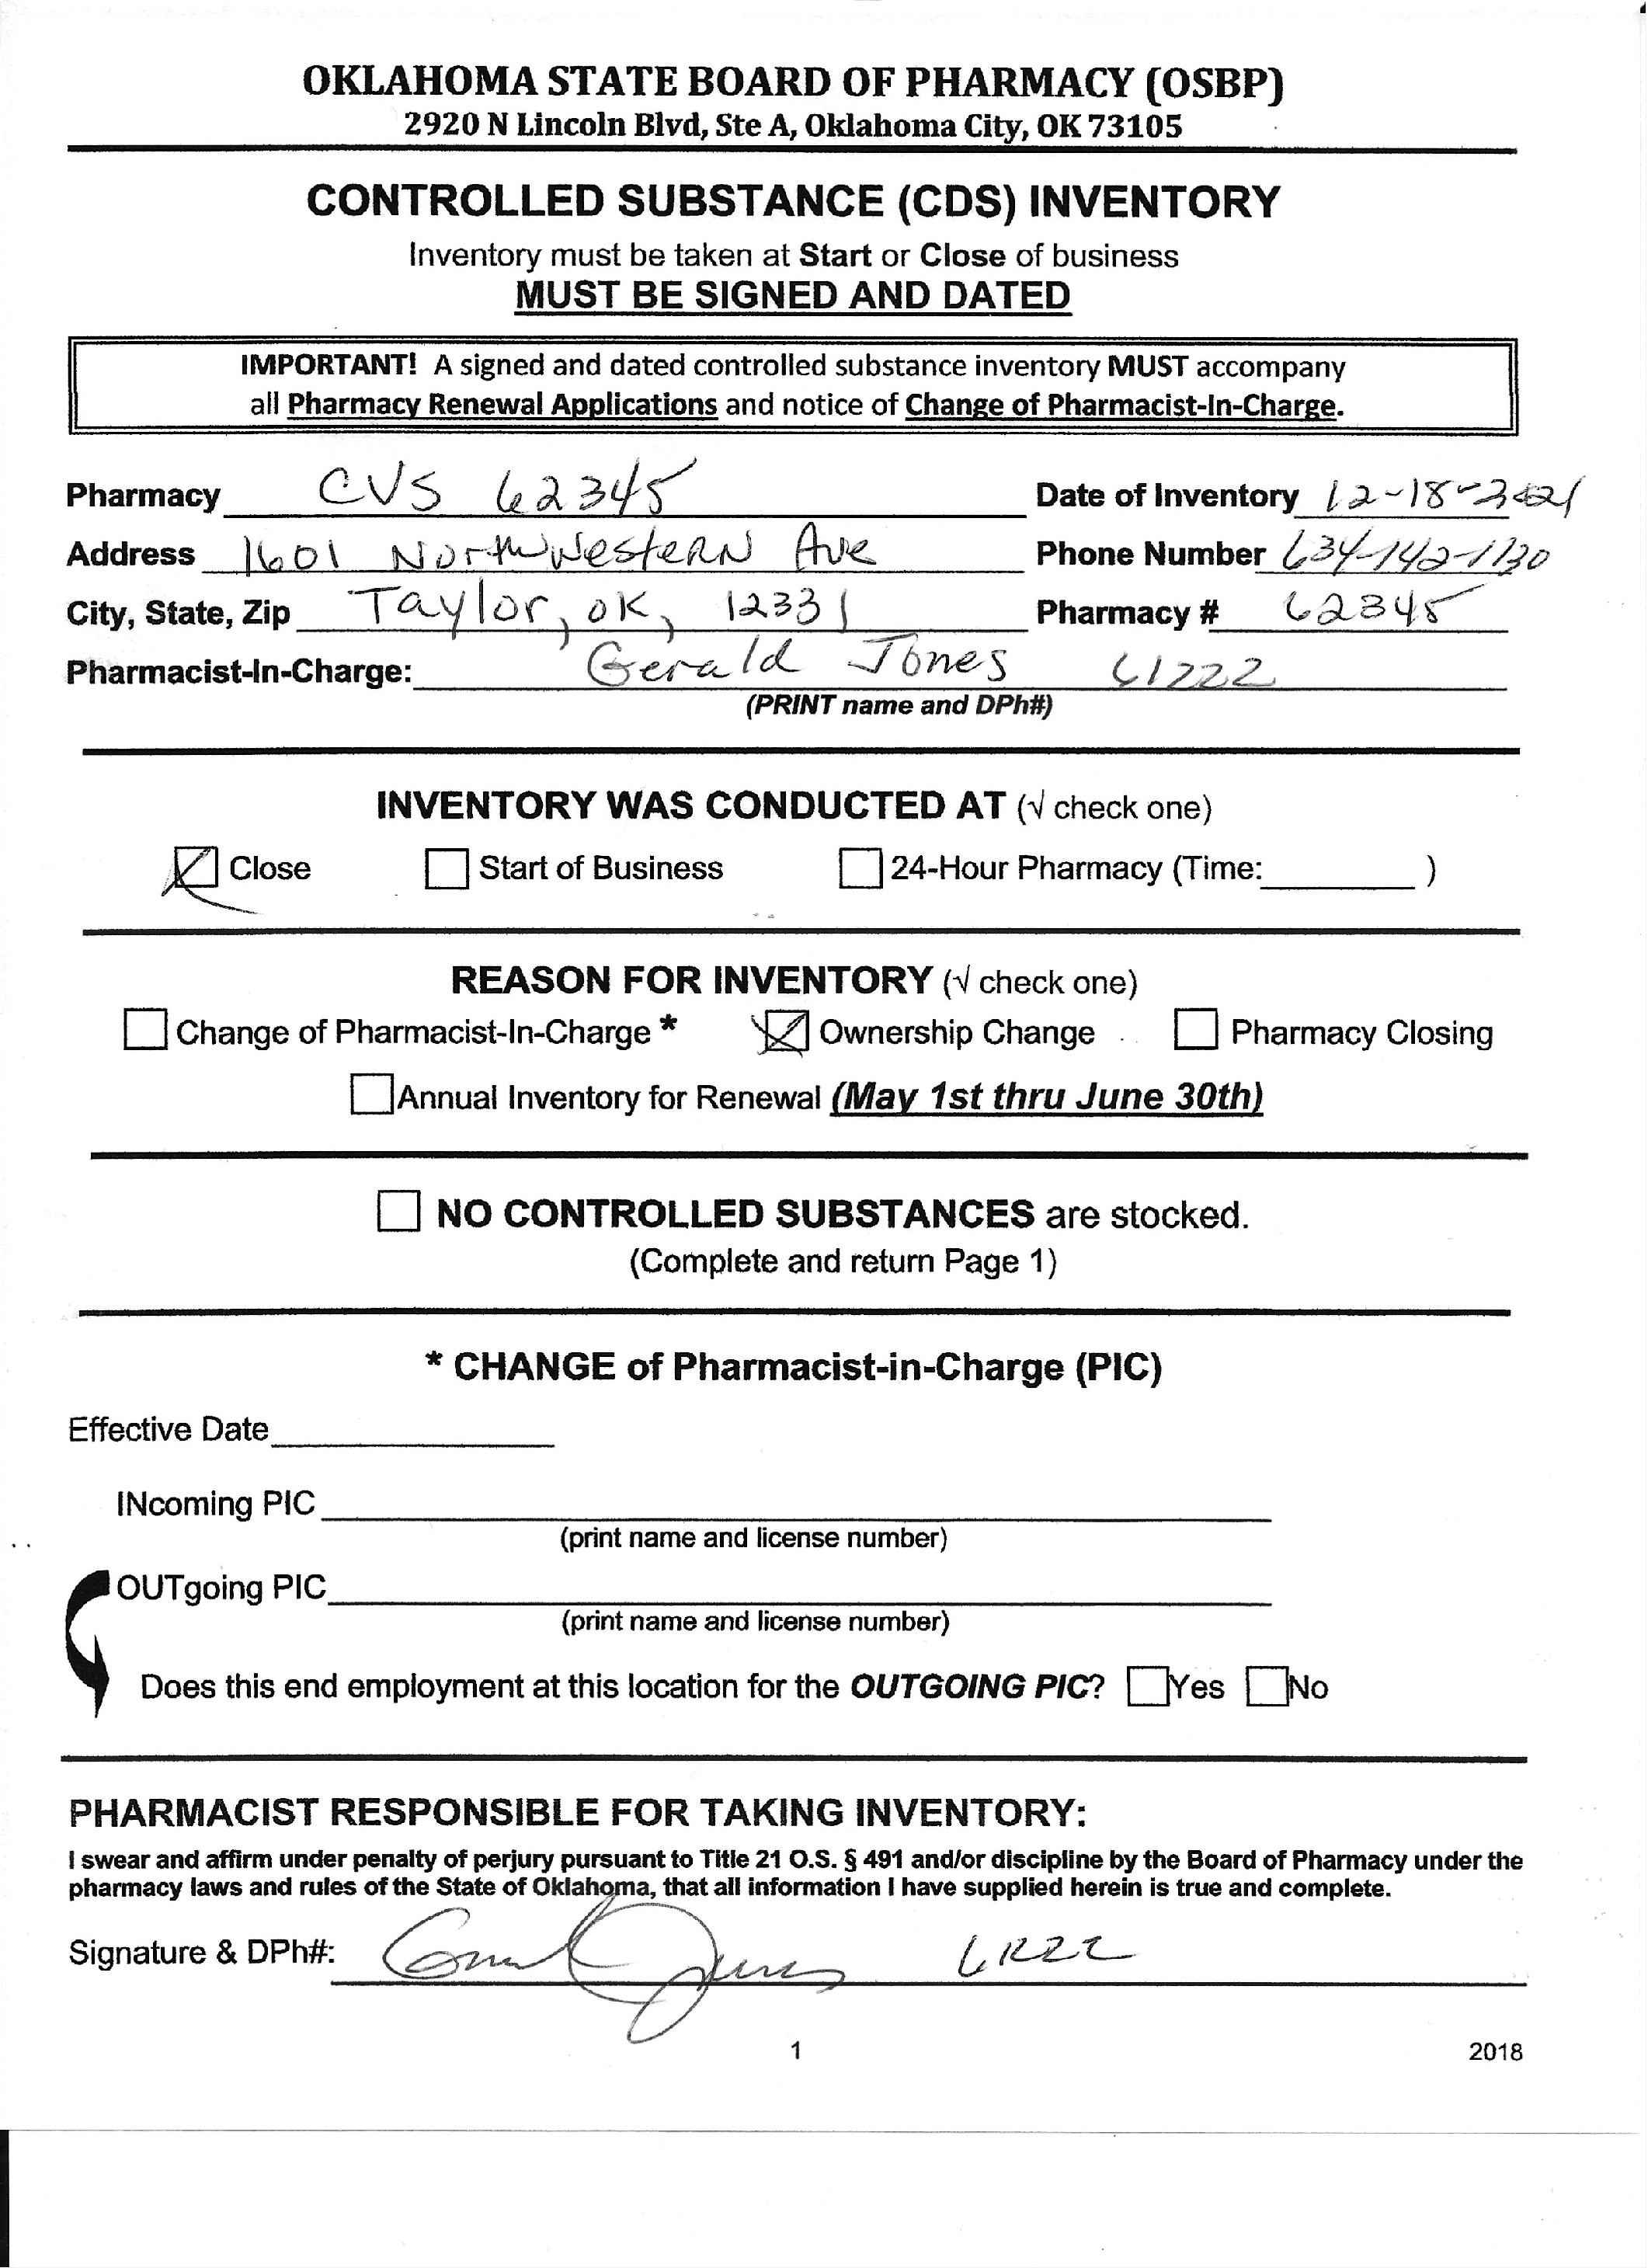 OKLAHOMA STATE BOARD OF PHARMACY (OSBP)
2920 N Lincoln Blvd, Ste A, Oklahoma City, OK 73105
CONTROLLED SUBSTANCE (CDS) INVENTORY
Inventory must be taken at Start or Close of business
MUST BE SIGNED AND DATED
IMPORTANT! A signed and dated controlled substance inventory MUST accompany
all Pharmacy Renewal Applications and notice of Change of Pharmacist-In-Charge.
Pharmacy CVS 62345 Date of Inventory 12-18-2021
Address 1601 NorthWestern Ave Phone Number 634-142-1130
City, State, Zip Taylor, OK, 12331 Pharmacy # 62345
Pharmacist-In-Charge: Gerald Jones 61222
(PRINT name and DPh#)
INVENTORY WAS CONDUCTED AT (√ check one)
Close Start of Business 24-Hour Pharmacy (Time: )
REASON FOR INVENTORY (√ check one)
Change of Pharmacist-In-Charge * Ownership Change Pharmacy Closing
Annual Inventory for Renewal (May 1st thru June 30th)
NO CONTROLLED SUBSTANCES are stocked.
(Complete and return Page 1)
* CHANGE of Pharmacist-in-Charge (PIC)
Effective Date
INcoming PIC
(print name and license number)
OUTgoing PIC
(print name and license number)
Does this end employment at this location for the OUTGOING PIC? Yes No
PHARMACIST RESPONSIBLE FOR TAKING INVENTORY:
I swear and affirm under penalty of perjury pursuant to Title 21 O.S. § 491 and/or discipline by the Board of Pharmacy under the
pharmacy laws and rules of the State of Oklahoma, that all information I have supplied herein is true and complete.
Signature & DPh#: 61222
1 2018